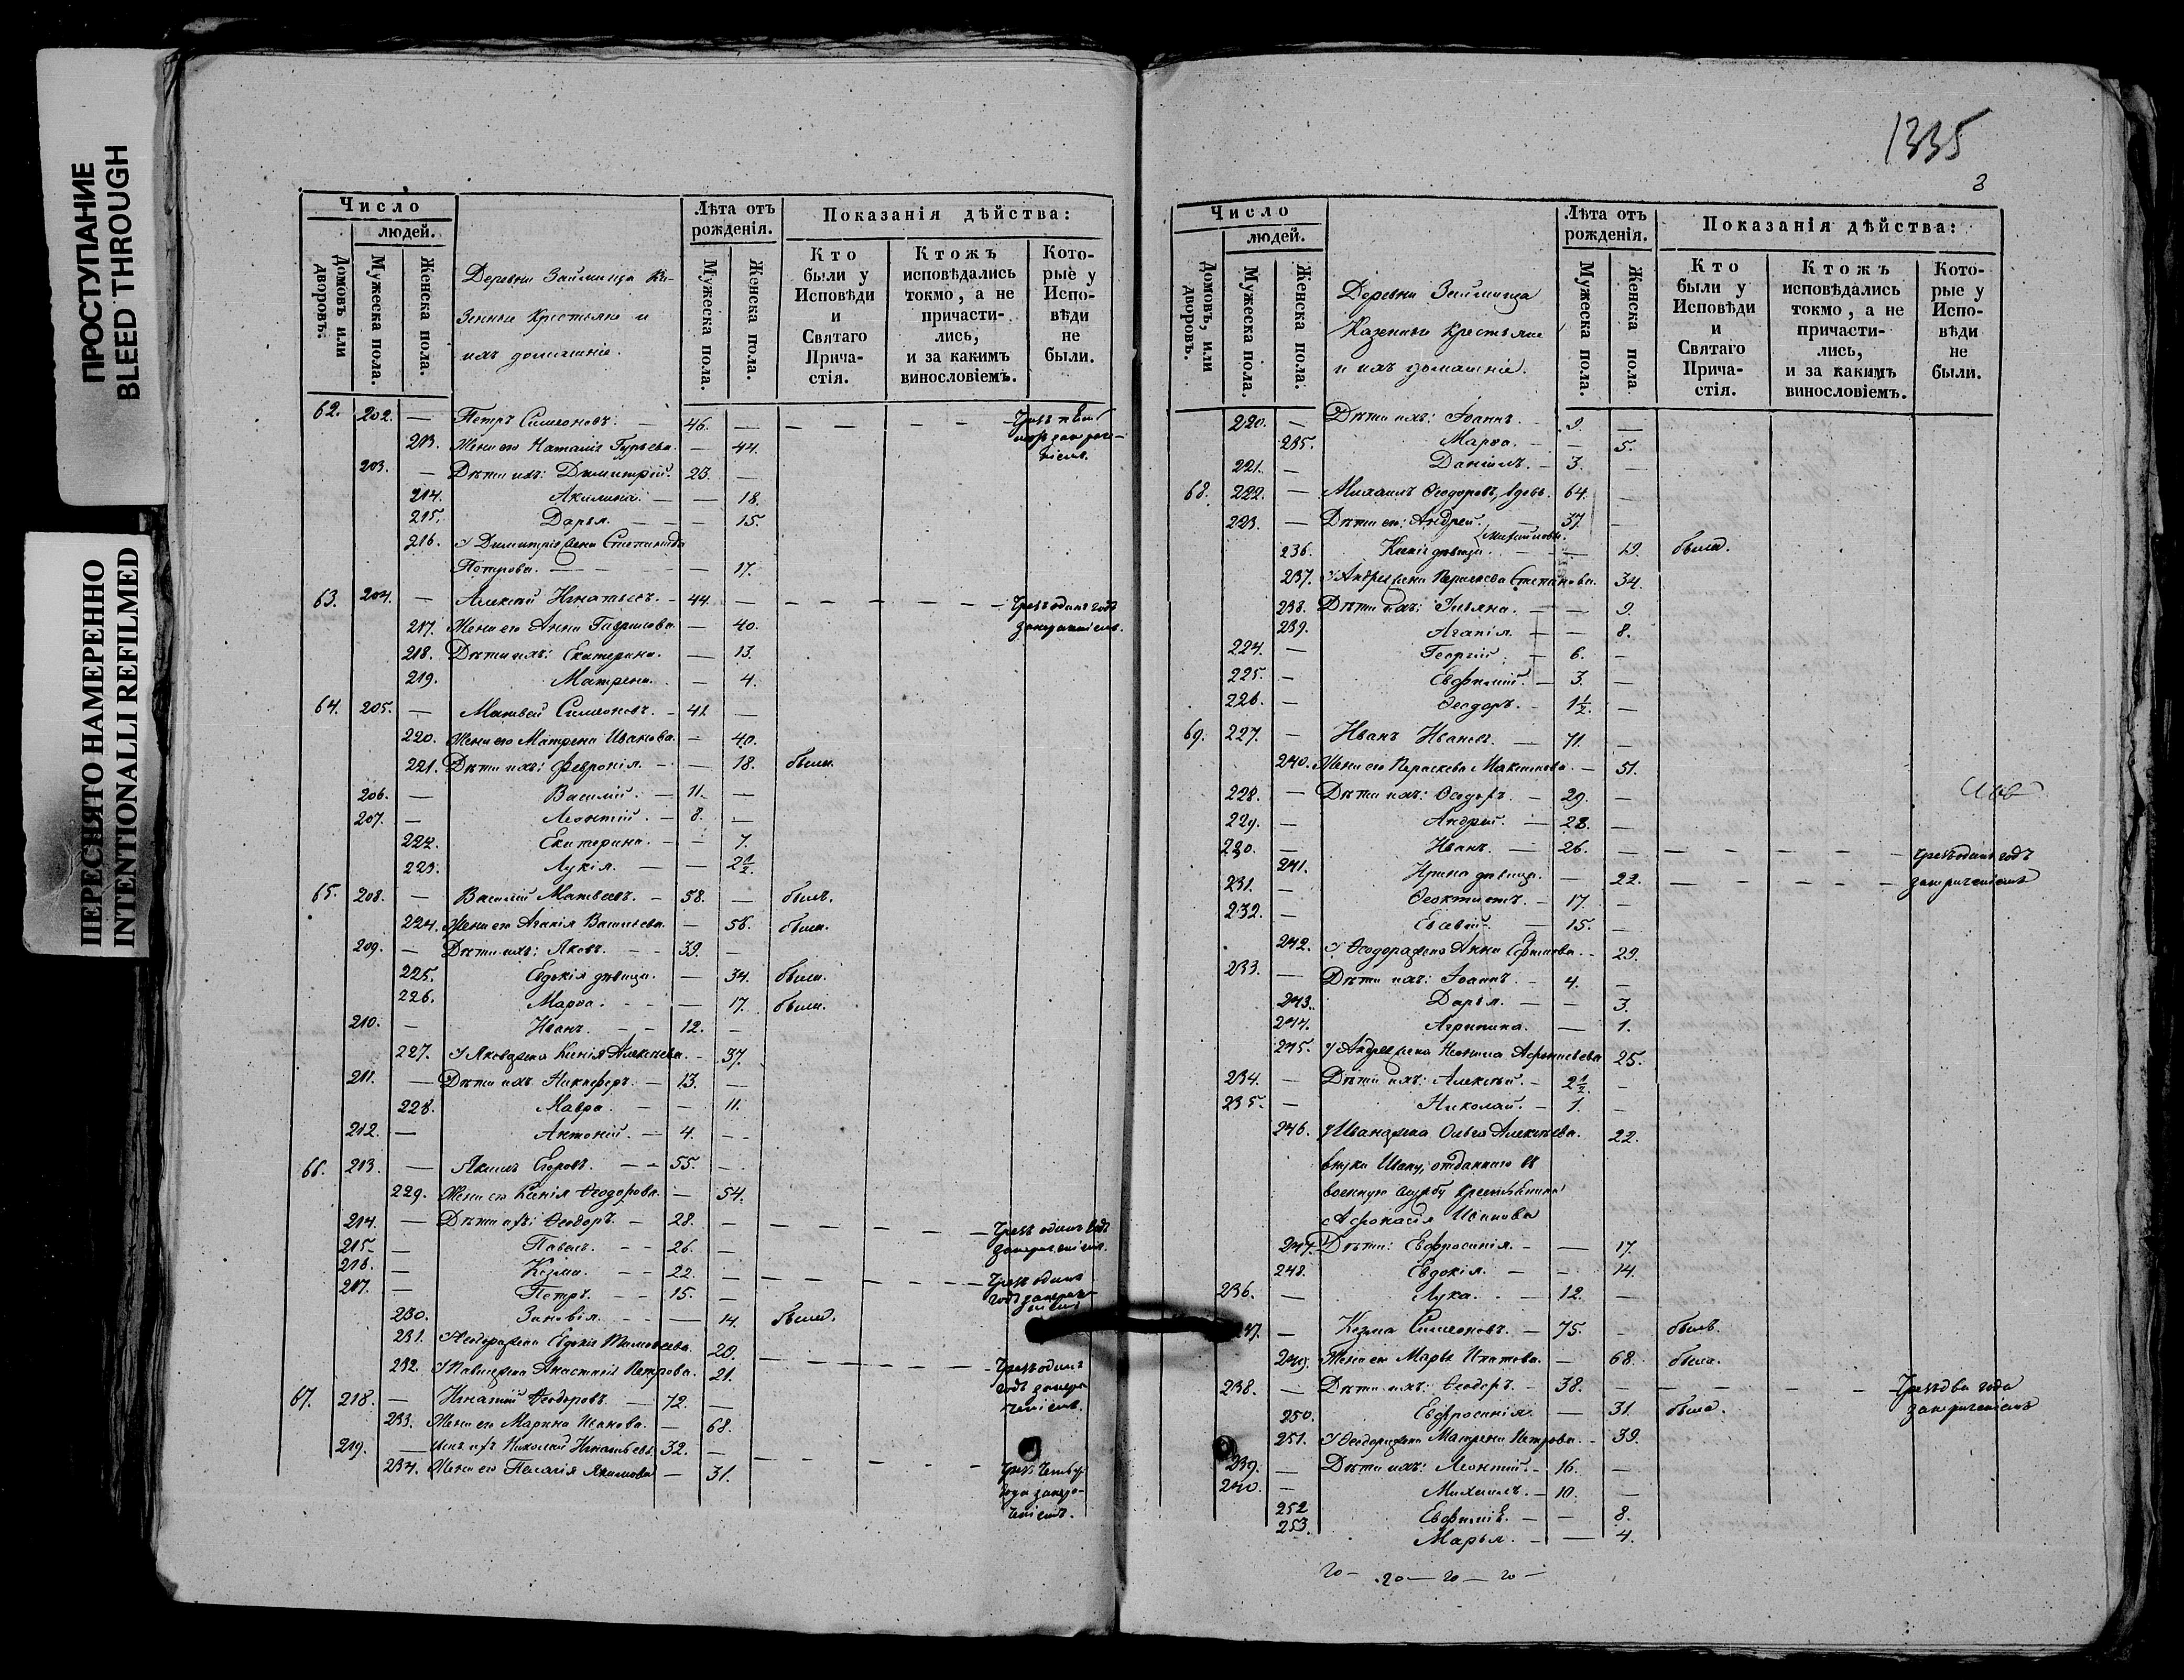 ПРОСТУПАНИЕ
BLEED THROUGH
ПЕРЕСНЯТО НАМЕРЕННО
INTENTIONALLI REFILMED
Число
людей.
Домовъ или дворовъ.
Мужеска пола.
Женска пола.
Деревни Займища Ка-
зенные крестьяне и
ихъ домашніе.
Лѣта отъ рожденія.
Мужеска пола.
Женска пола.
Показанія дѣйства:
Кто были у Исповѣди и Святаго Прича-стія.
Ктожъ исповѣдались токмо, а не причасти-лись, и за какимъ винословіемъ.
Кото-рые у Испо-вѣди не были.
62. 202. — Петръ Симеоновъ. — 46. —
213. Жена его Наталія Гурьева. — 44.
203. — Дѣти ихъ: Димитрій. 23. —
214. Акилина. — — 18.
215. Дарья. — — 15.
216. У Димитрія жена Степанида
Петрова. — — 17.
63. 204. — Алексѣй Игнатьевъ. — 44. — Чрезъ одинъ годъ
217. Жена его Анна Гаврилова. — 40. занерачениемъ.
218. Дѣти ихъ: Екатерина. — 13.
219. Матрена. — 4.
64. 205. — Матвей Симеоновъ. — 41. —
220. Жена его Матрена Иванова. — 40.
221. Дѣти ихъ: Февронія. — — 18. была.
206. — Василій. — 11. —
207. — Леонтій. — 8. —
222. Екатерина. — — 7.
223. Лукія. — — 2 1/2.
65. 208. — Василій Матвеевъ. — 58. — былъ.
224. Жена его Агапія Васильева. — 56. была.
209. — Дѣти ихъ: Яковъ. — 39. —
225. Евдокія дѣвица. — 34. была.
226. Марѳа. — — 17. была.
210. — Иванъ. — — 12. —
227. У Якова жена Ксенія Алексѣева. — 37.
211. — Дѣти ихъ Никифоръ. — 13. —
228. Мавра. — — 11.
212. — Антоній. — 4. —
66. 213. — Якимъ Егоровъ. — — 55. —
229. Жена его Ксенія Ѳеодорова. — 54.
214. — Дѣти ихъ: Ѳеодоръ. — 28. — Чрезъ одинъ годъ
215. — Павелъ. — — 26. —
216. — Козма. — — 22. — Чрезъ одинъ
217. — Петръ. — — 15. — годъ
230. Зиновія. — — 14. была.
231. У Ѳеодора жена Евдокія 20.
232. У Павла жена Анастасія Петрова. 21. Чрезъ одинъ
годъ
67. 218. — Игнатій Ѳеодоровъ. — 72. —
233. Жена его Марина Иванова. — 68.
219. — Сынъ ихъ Николай Игнатьевъ. 32. —
234. Жена его Пелагія Якимова — 31. Чрезъ
года
1335
3
Число
людей.
Домовъ, или дворовъ.
Мужеска пола.
Женска пола.
Деревни Займища
Казенные крестьяне
и ихъ домашніе.
Лѣта отъ рожденія.
Мужеска пола.
Женска пола
Показанія дѣйства:
Кто были у Исповѣди и Святаго Прича-стія.
Ктожъ исповѣдались токмо, а не причасти-лись, и за какимъ винословіемъ.
Кото-рые у Испо-вѣди не были.
220. — Дѣти ихъ: Іоаннъ. — 9. —
235. Марѳа. — — 5.
221. — Даніилъ. — 3. —
68. 222. — Михаилъ Ѳеодоровъ, вдовъ. 64. —
223. — Дѣти его: Андрей. — 37. —
236. Ксенія дѣвица. — — 19. была.
237. У Андрея жена Параскева Степанова. 34.
238. Дѣти ихъ: Ульяна. — — 9.
239. Агапія. — — 8.
224. — Георгій. — 6. —
225. — Евфимій. — 3. —
226. — Ѳеодоръ. — 1 1/2. —
69. 227. — Иванъ Ивановъ. — 71. —
240. Жена его Параскева Максимова. — 51.
228. — Дѣти ихъ: Ѳеодоръ. — 29. —
229. — Андрей. — 28. —
230. — Иванъ. — 26. — Чрезъ одинъ годъ
241. Ирина дѣвица. — 22.
231. — Ѳеоктистъ. — 17. —
232. — Евсевій. — 15. —
242. У Ѳеодора жена Анна Ефимова. — 29.
233. — Дѣти ихъ: Іоаннъ. — 4. —
243. Дарья. — — 3.
244. Агрипина. — 1.
245. У Андрея жена Неонила Афанасьева 25.
234. — Дѣти ихъ: Алексѣй. — 2 1/2. —
235. — Николай. — 1. —
246. У Ивана жена Ольга Алексѣева. 22.
внуки Ивану, отданнаго въ
военную службу крестьянина
Афонасія Иванова
247. Дѣти: Евфросинія. — — 17.
248. Евдокія. — — 14.
236. — Лука. — — 12. —
237. — Козма Симеоновъ. — 75. — былъ.
249. Жена его Марья Ипатова. — 68. была.
238. — Дѣти ихъ: Ѳеодоръ. — 38. — Чрезъ два года
250. Евфросинія. — 31. была.
251. У Ѳеодора жена Матрена Петрова. — 39.
239. — Дѣти ихъ: Леонтій. — 16. —
240. — Михаилъ. — 10. —
252 Евфимія. — — 8.
253. Марья. — — 4.